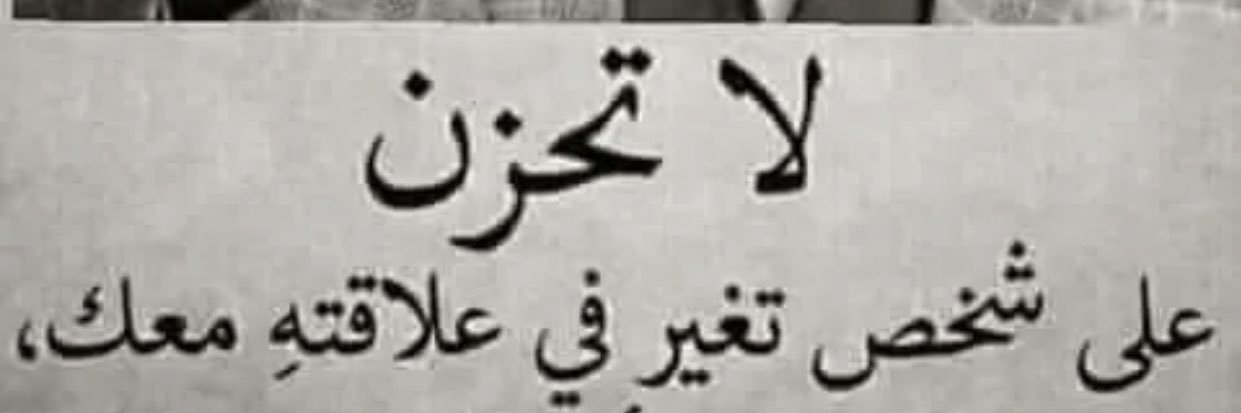 لا تحزن
على شخص تغير في علاقتهِ معك،